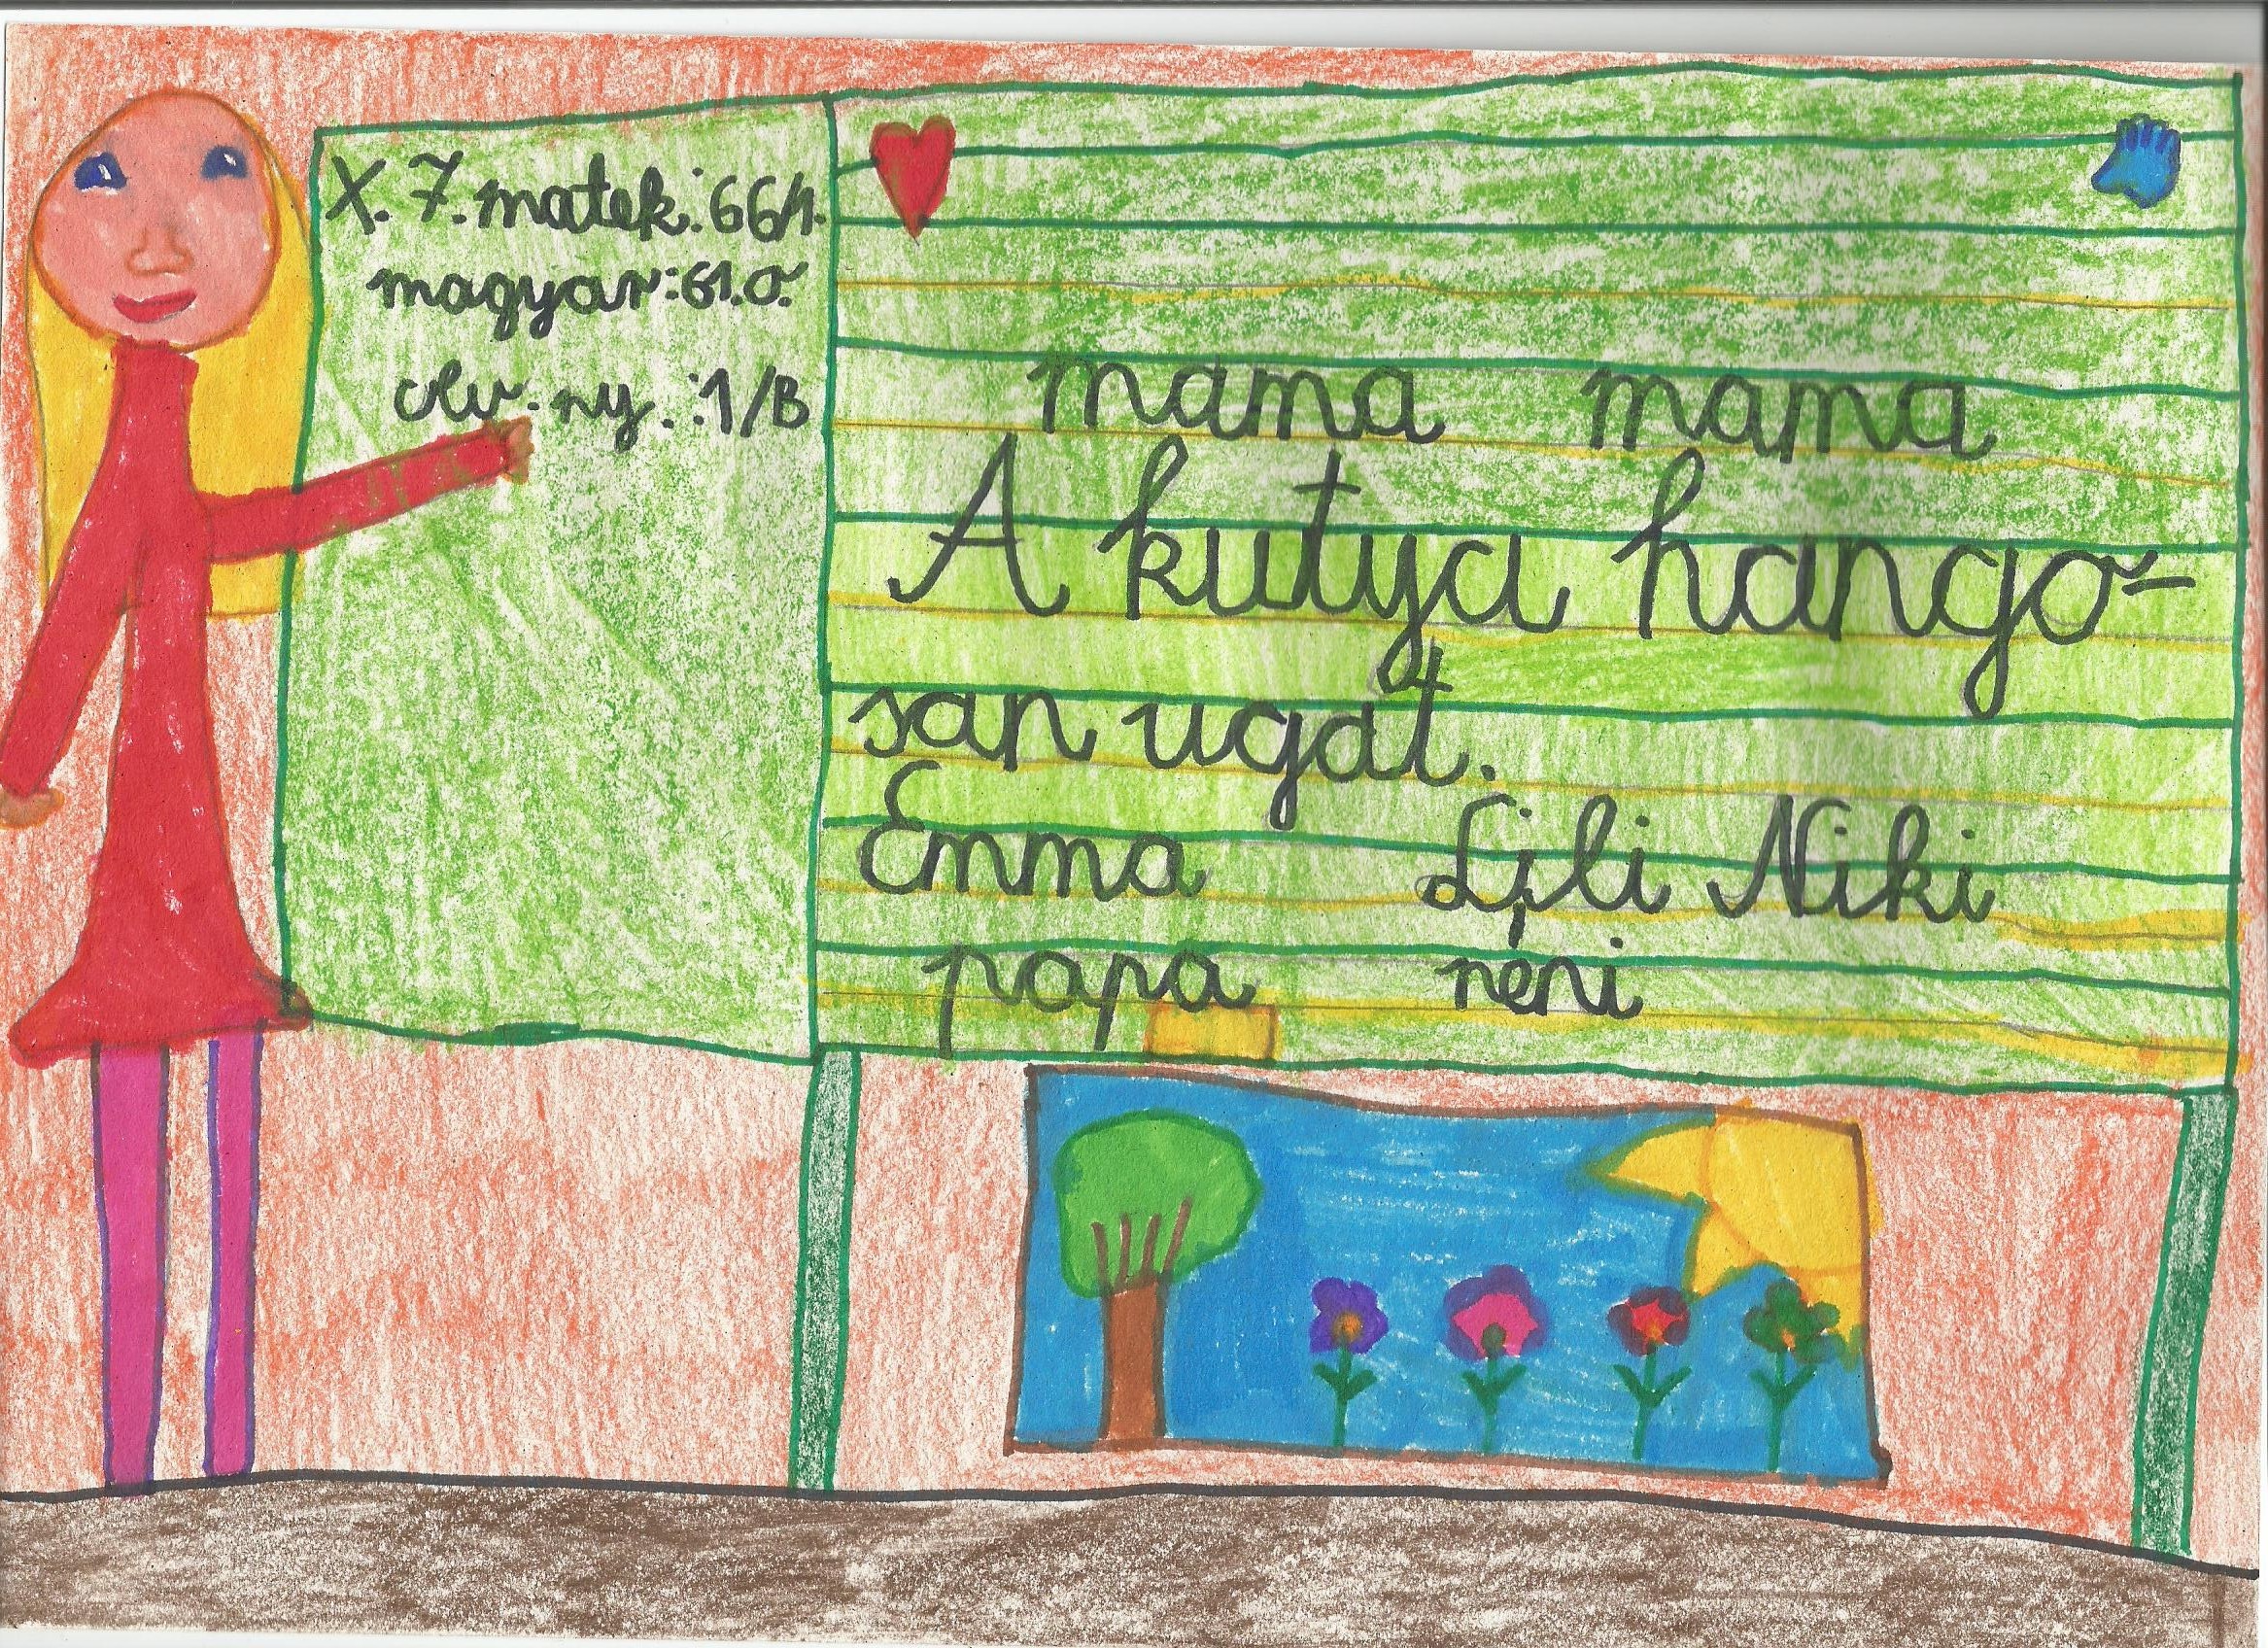 X. 7. matek: 66/1.
magyar: 61.o.
olv. ny. : 1/B
mama mama
A kutya hango-
san ugat.
Emma Lili Niki
papa neni